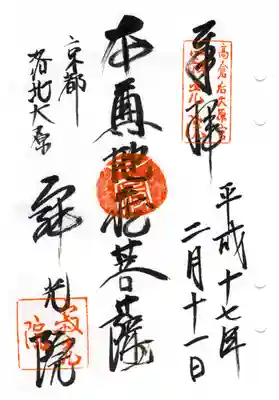 奉拝
平成十七年
二月十一日
本尊地蔵菩薩
京都
洛北大原
寂光院
寂光院